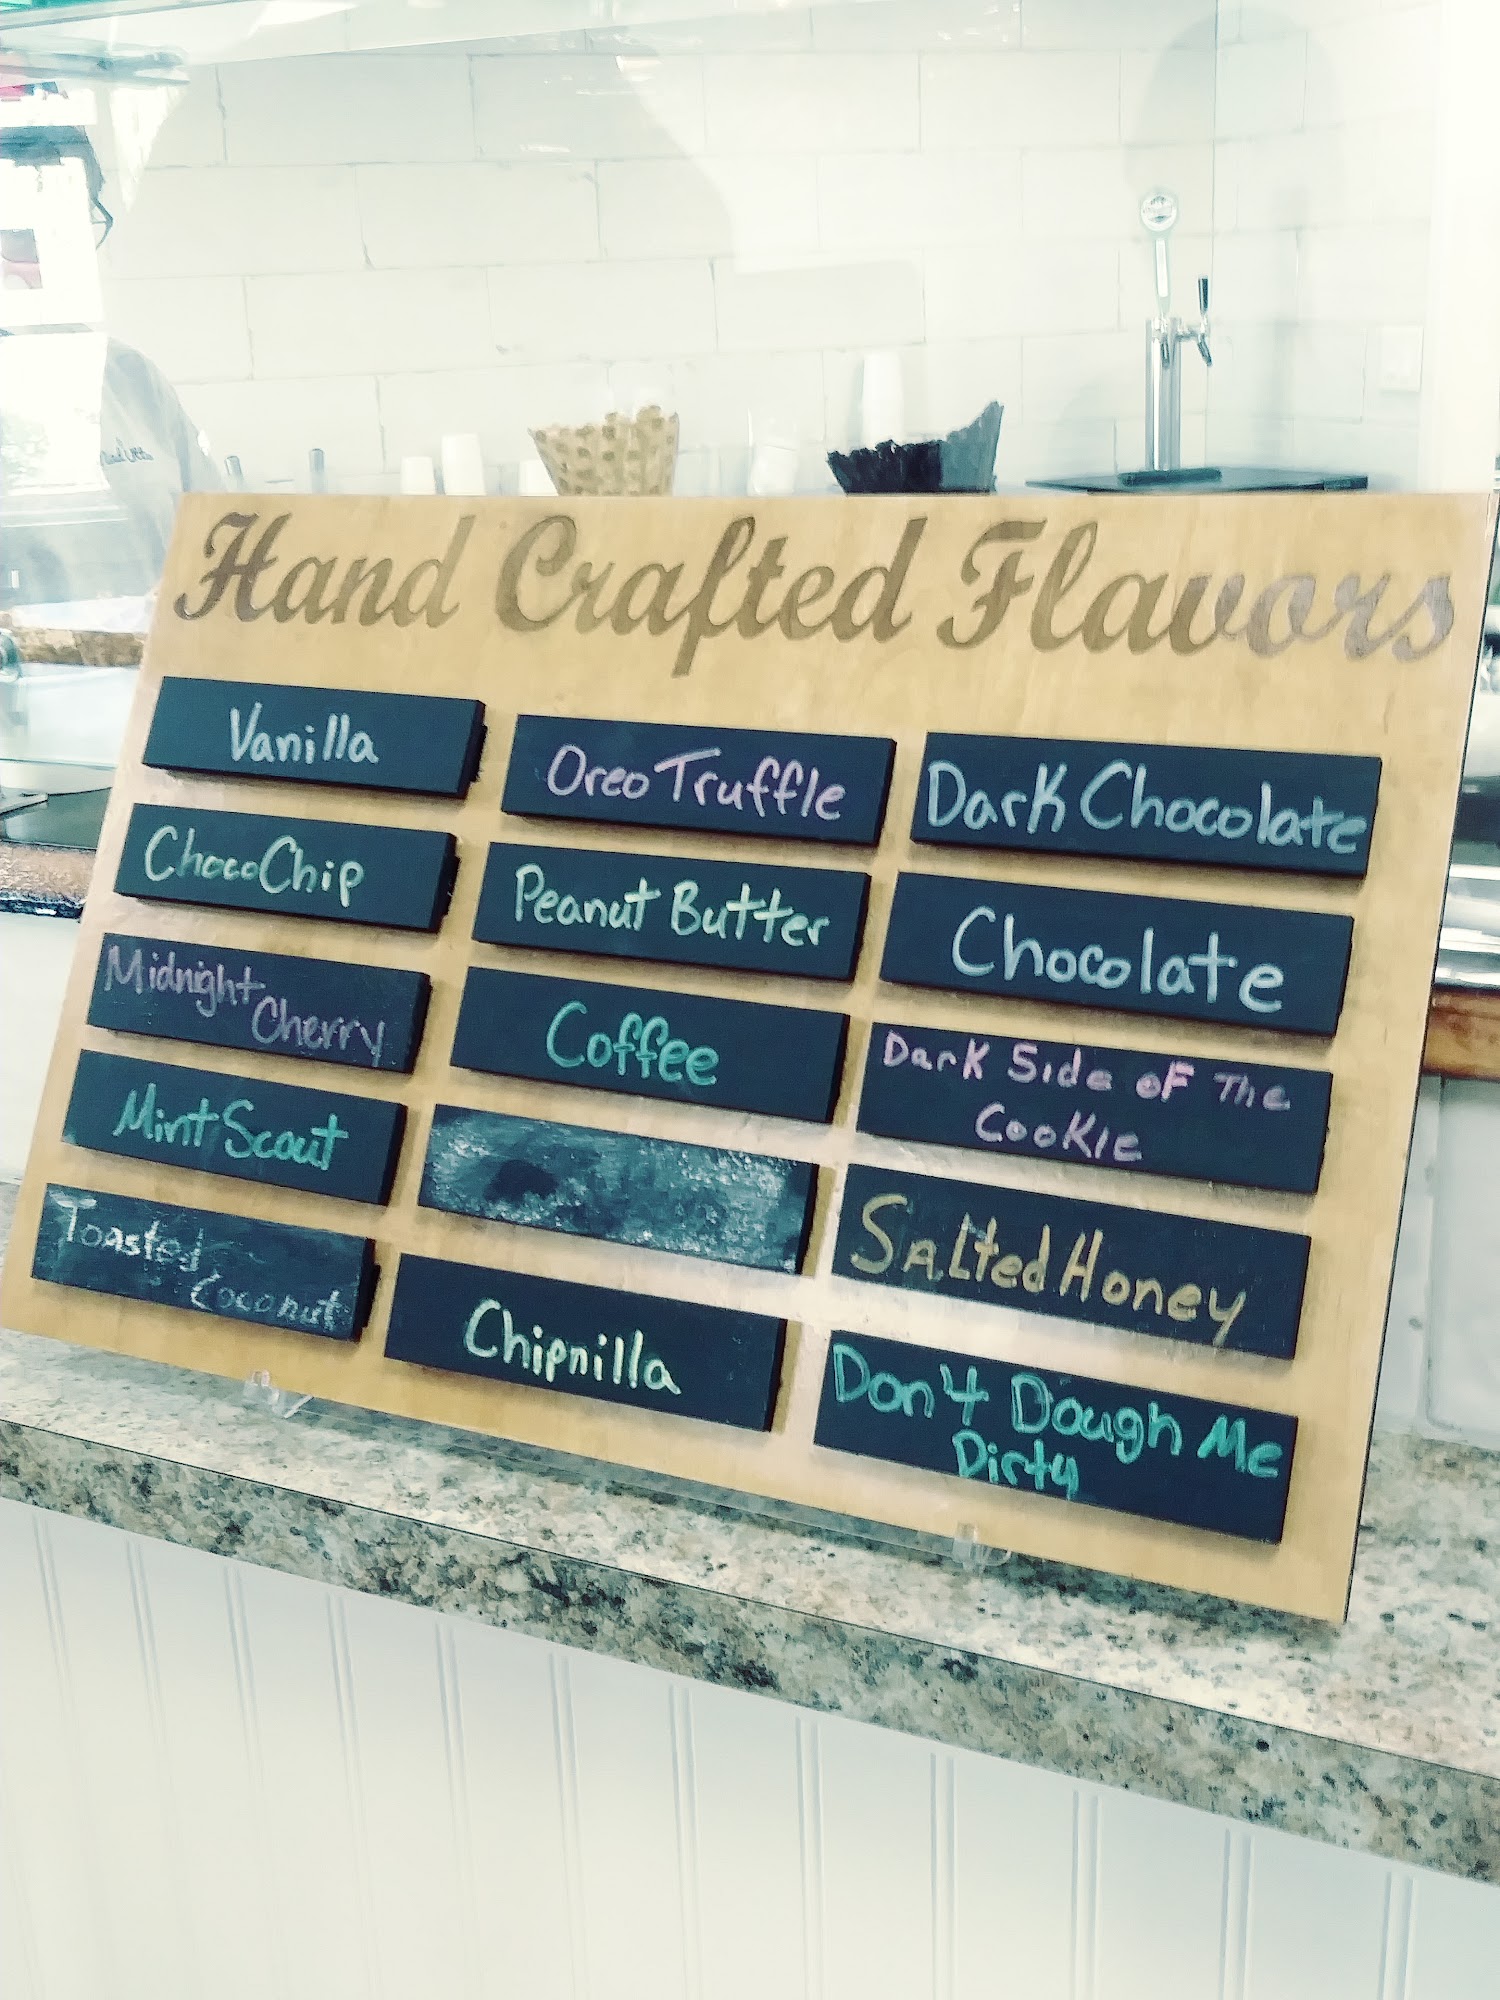 Hand Crafted Flavors
Vanilla
ChocoChip
Midnight
Cherry
Mint Scout
Toasted
Coconut
Oreo Truffle
Peanut Butter
Coffee
Chipnilla
Dark Chocolate
Chocolate
Dark Side of The
Cookie
Salted Honey
Don't Dough Me
Dirty